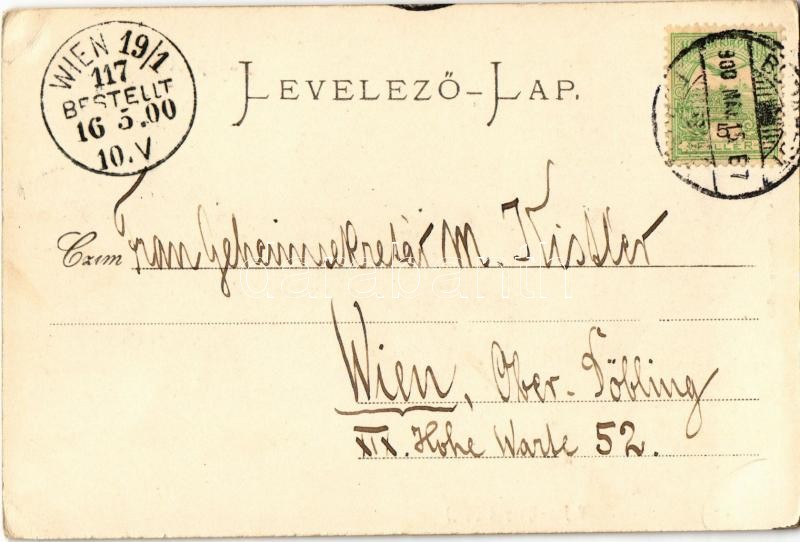 WIEN 19/1
117
BESTELLT
16 5.00
10.V
LEVELEZŐ-LAP.
900 MÁJ. 15
FILLÉR
Czim Frau Geheimsekretär M. Kistler
darabanth
Wien, Ober-Döbling
XIX. Hohe Warte 52.